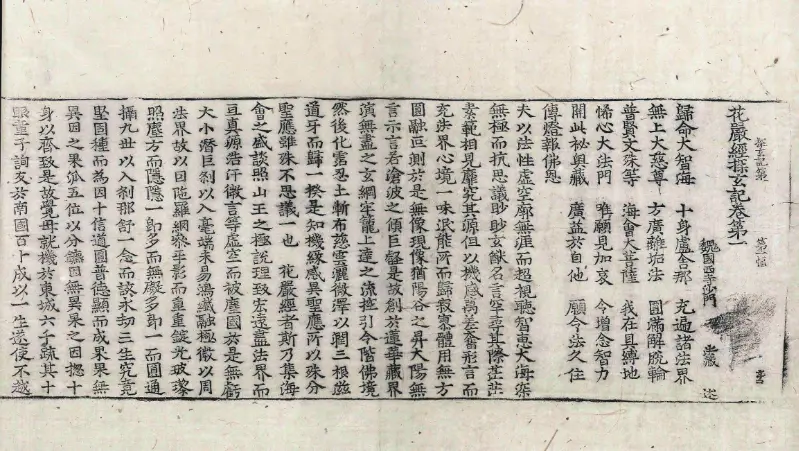 花嚴經探玄記卷第一
魏國西寺沙門 法藏 述
歸命大智海 十身盧舍那 充遍諸法界
無上大慈尊 方廣離垢法 圓滿解脫輪
普賢文殊等 海會大菩薩 我在具縛地
悕心大法門 唯願見加哀 令增念智力
開此祕奧藏 廣益於自他 願令法久住
傳燈報佛恩
夫以法性虛空廓無涯而超視聽智惠大海深
無極而抗思議眇眇玄猷名言罕尋其際茫茫
素範相見靡究其源但以機感萬差奮形言而
充法界心境一味泯能所而歸寂寥體用無方
圓融叵測於是無像現像猶陽谷之昇太陽無
言示言若滄波之傾巨壑是故創於蓮華藏界
演無盡之玄綱牢籠上達之流控引令階佛境
然後化霑忍土漸布慈雲灑微澤以潤三根滋
道牙而歸一揆是知機緣感異聖應所以殊分
聖應雖殊不思議一也 花嚴經者斯乃集海
會之盛談照山王之極說理致宏遠盡法界而
亘真源浩汗微言等虛空而被塵國於是無虧
大小潛巨刹以入毫端未易鴻纖融極微以周
法界故以因陁羅網參乎影而重重錠光玻瓈
照塵方而隱隱一即多而無礙多即一而圓通
攝九世以入刹那舒一念而該永劫三生究竟
堅固種而為因十信道圓普德顯而成果果無
異因之果派五位以分鑣因無異果之因揔十
身以齊致是故覺母就機於東城六千疏其十
眼童子詢友於南國百十成以一生遂使不越